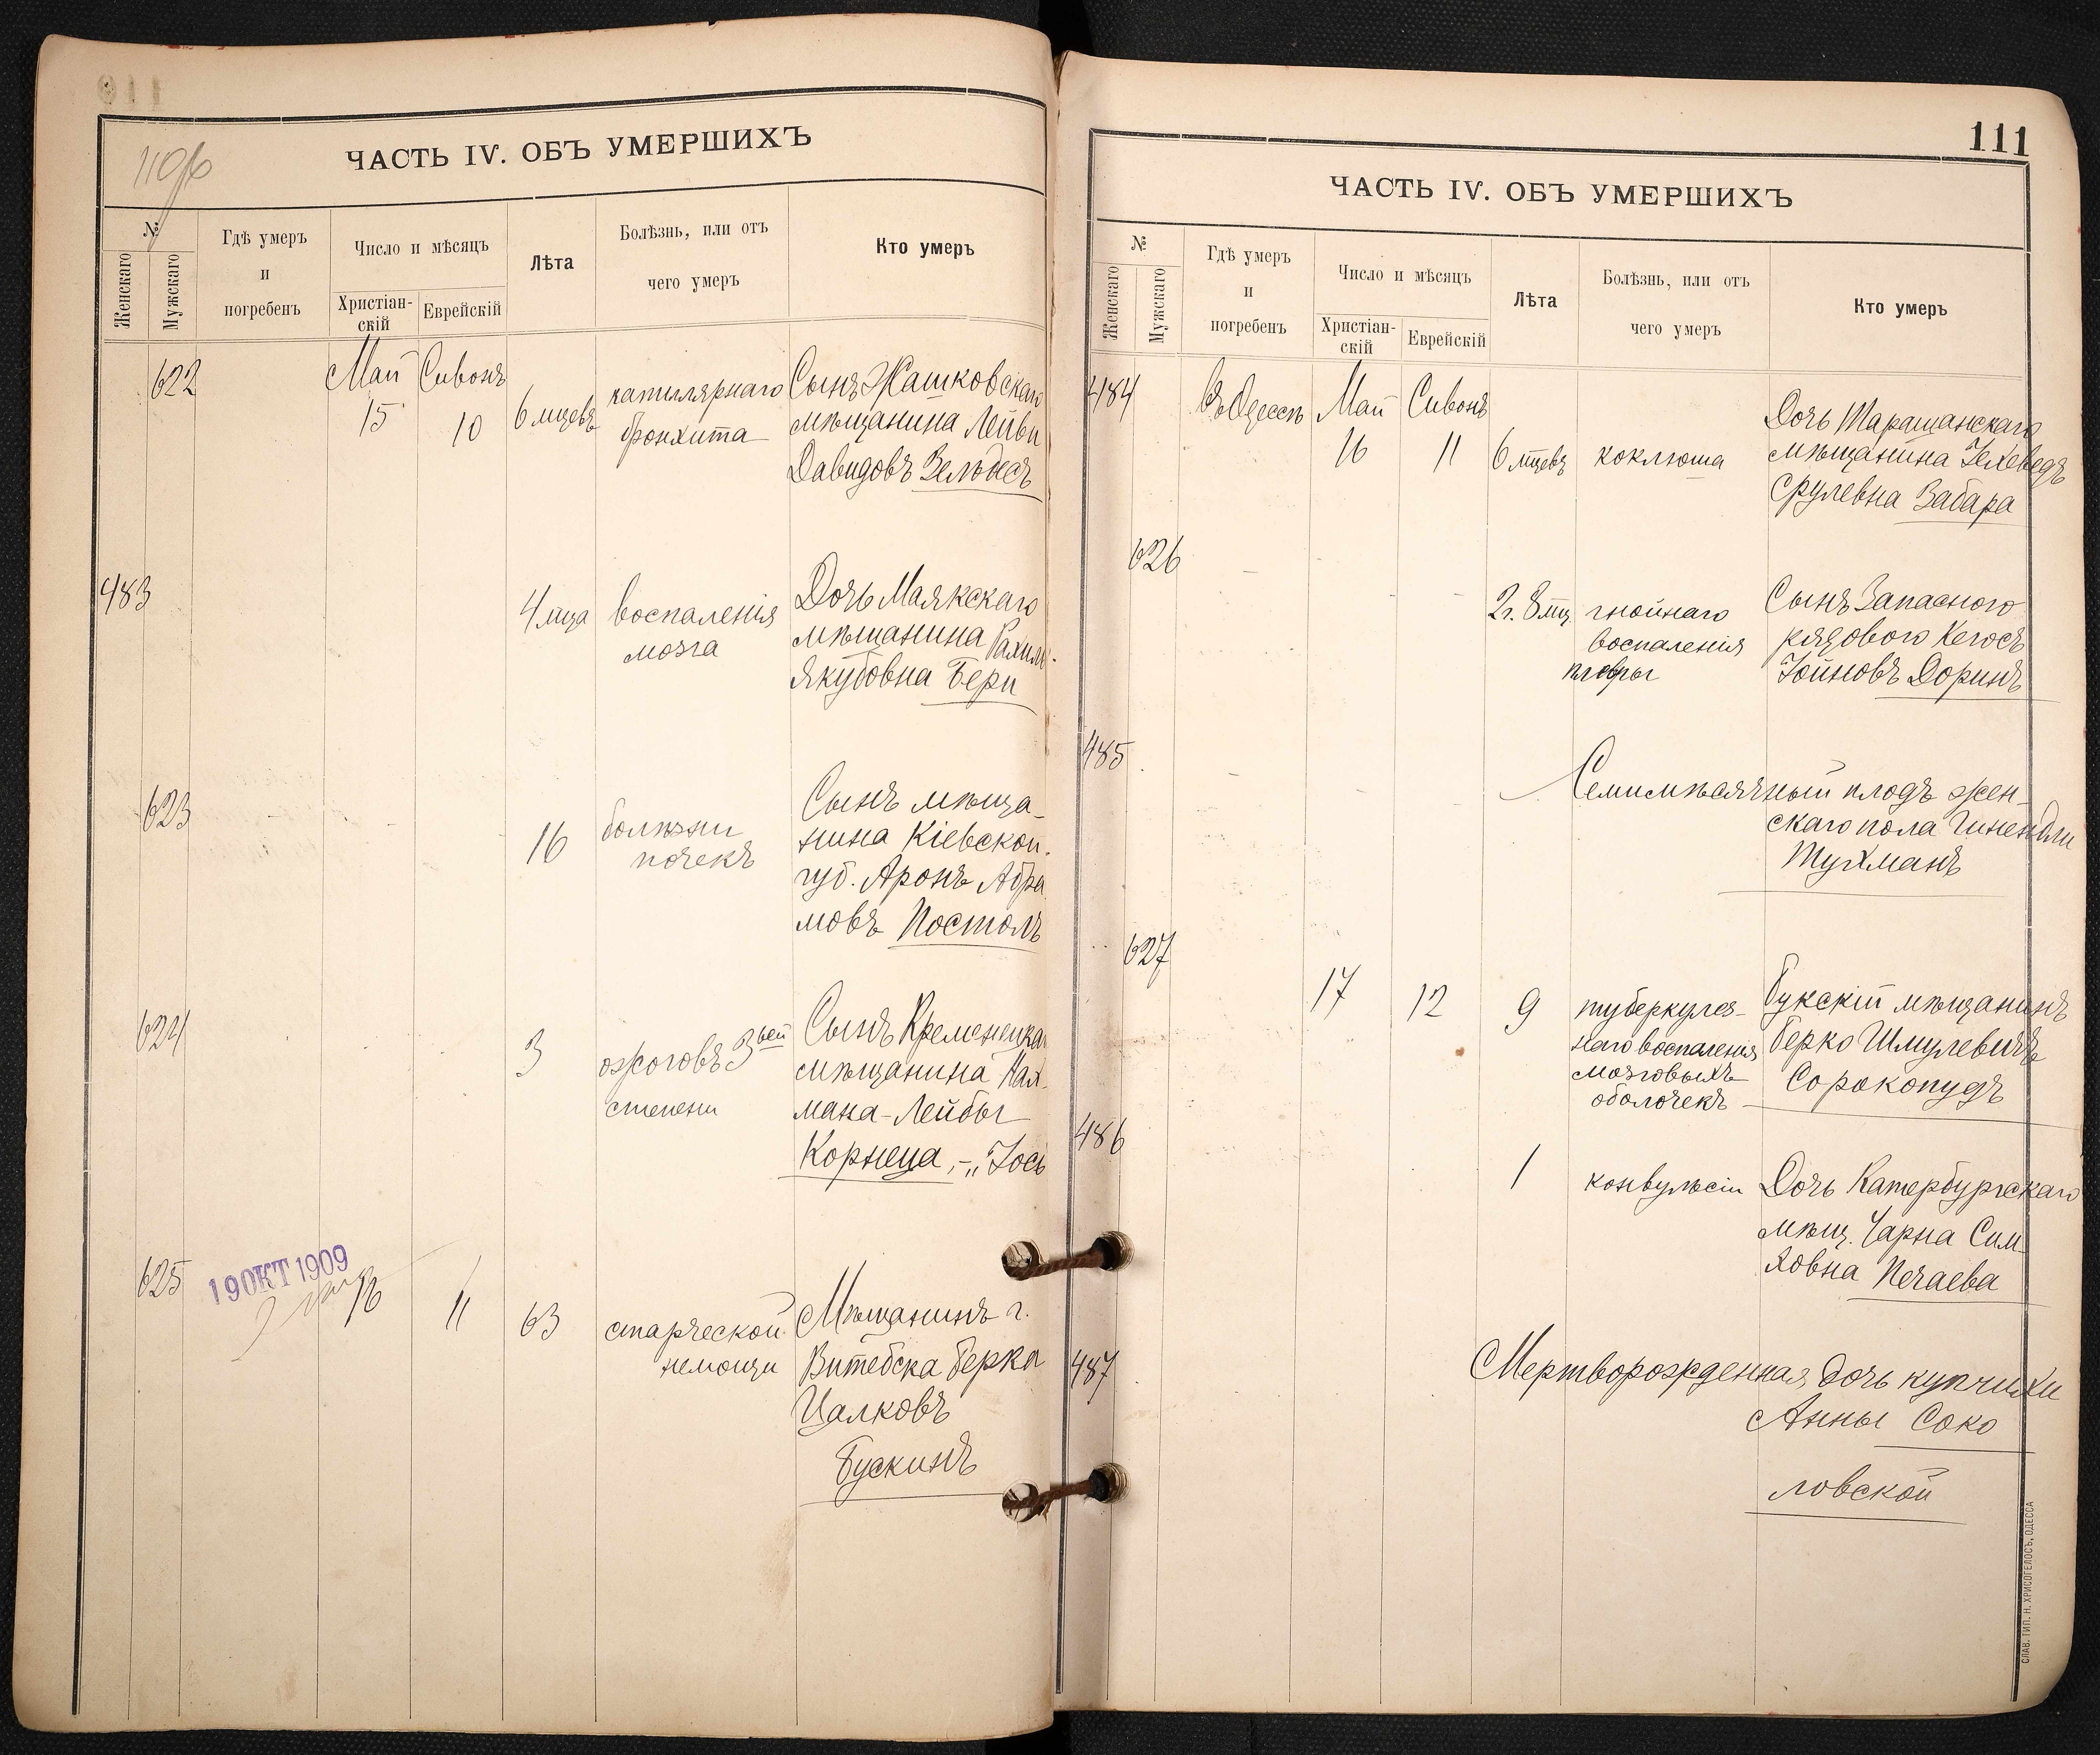 110об
ЧАСТЬ IV. ОБЪ УМЕРШИХЪ
№
Женскаго
Мужскаго
Гдѣ умеръ
и
погребенъ
Число и мѣсяцъ
Христіан-
скій
Еврейскій
Лѣта
Болѣзнь, или отъ
чего умеръ
Кто умеръ
622
Май
15
Сивонъ
10
6 мцевъ
капиллярнаго
бронхита
Сынъ Жашковскаго
мѣщанина Лейви
Давидовъ Зельдесъ
483
4 мца
воспаленія
мозга
Дочь Маякскаго
мѣщанина Рахиль
Якубовна Бери
623
16
болѣзни
почекъ
Сынъ мѣща-
нина Кіевской
губ. Аронъ Абра
мовъ Постолъ
624
3
ожоговъ 3ьей
степени
Сынъ Кременецка
мѣщанина Нах-
мана-Лейбы
Корнеца, -„ Іось
625
19 ОКТ 1909
16
11
63
старческой
немощи
Мѣщанинъ г.
Витебска Берка
Цалковъ
Бускинъ
111
ЧАСТЬ IV. ОБЪ УМЕРШИХЪ
№
Женскаго
Мужскаго
Гдѣ умеръ
и
погребенъ
Число и мѣсяцъ
Христіан-
скій
Еврейскій
Лѣта
Болѣзнь, или отъ
чего умеръ
Кто умеръ
484
Въ Одессѣ
Май
16
Сивонъ
11
6 мцевъ
коклюша
Дочь Таращанскаго
мѣщанина Іехеведъ
Срулевна Забара
626
2 г. 8 мц
гнойнаго
воспаленія
плевры
Сынъ Запасного
рядового Кегосъ
Іойновъ Доринъ
485
Семимѣсячный плодъ жен-
скаго пола Гинендли
Тухманъ
627
17
12
9
туберкулез-
наго воспаленія
мозговыхъ
оболочекъ
Букскій мѣщанинъ
Берко Шмулевичъ
Сорокопудъ
486
1
конвульсіи
Дочь Катербургскаго
мѣщ. Чарна Сим-
ховна Нечаева
487
Мертворожденная дочь купчихи
Анны Соко
ловской
СЛАВ. ТИП. Н. ХРИСОГЕЛОСЪ, ОДЕССА